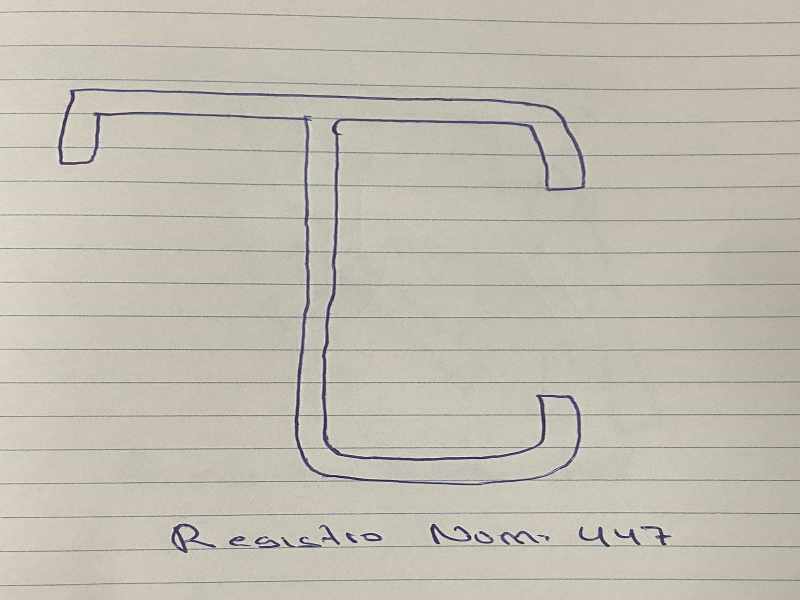 TC
Registro Nom. 447